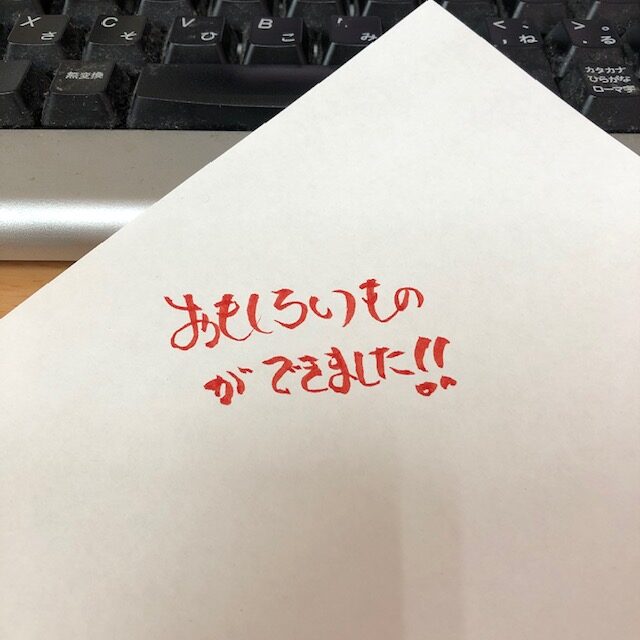 X C V B
さ そ ひ こ み 、ね 。る
無変換
カタカナ
ひらがな
ローマ字
おもしろいもの
ができました!!